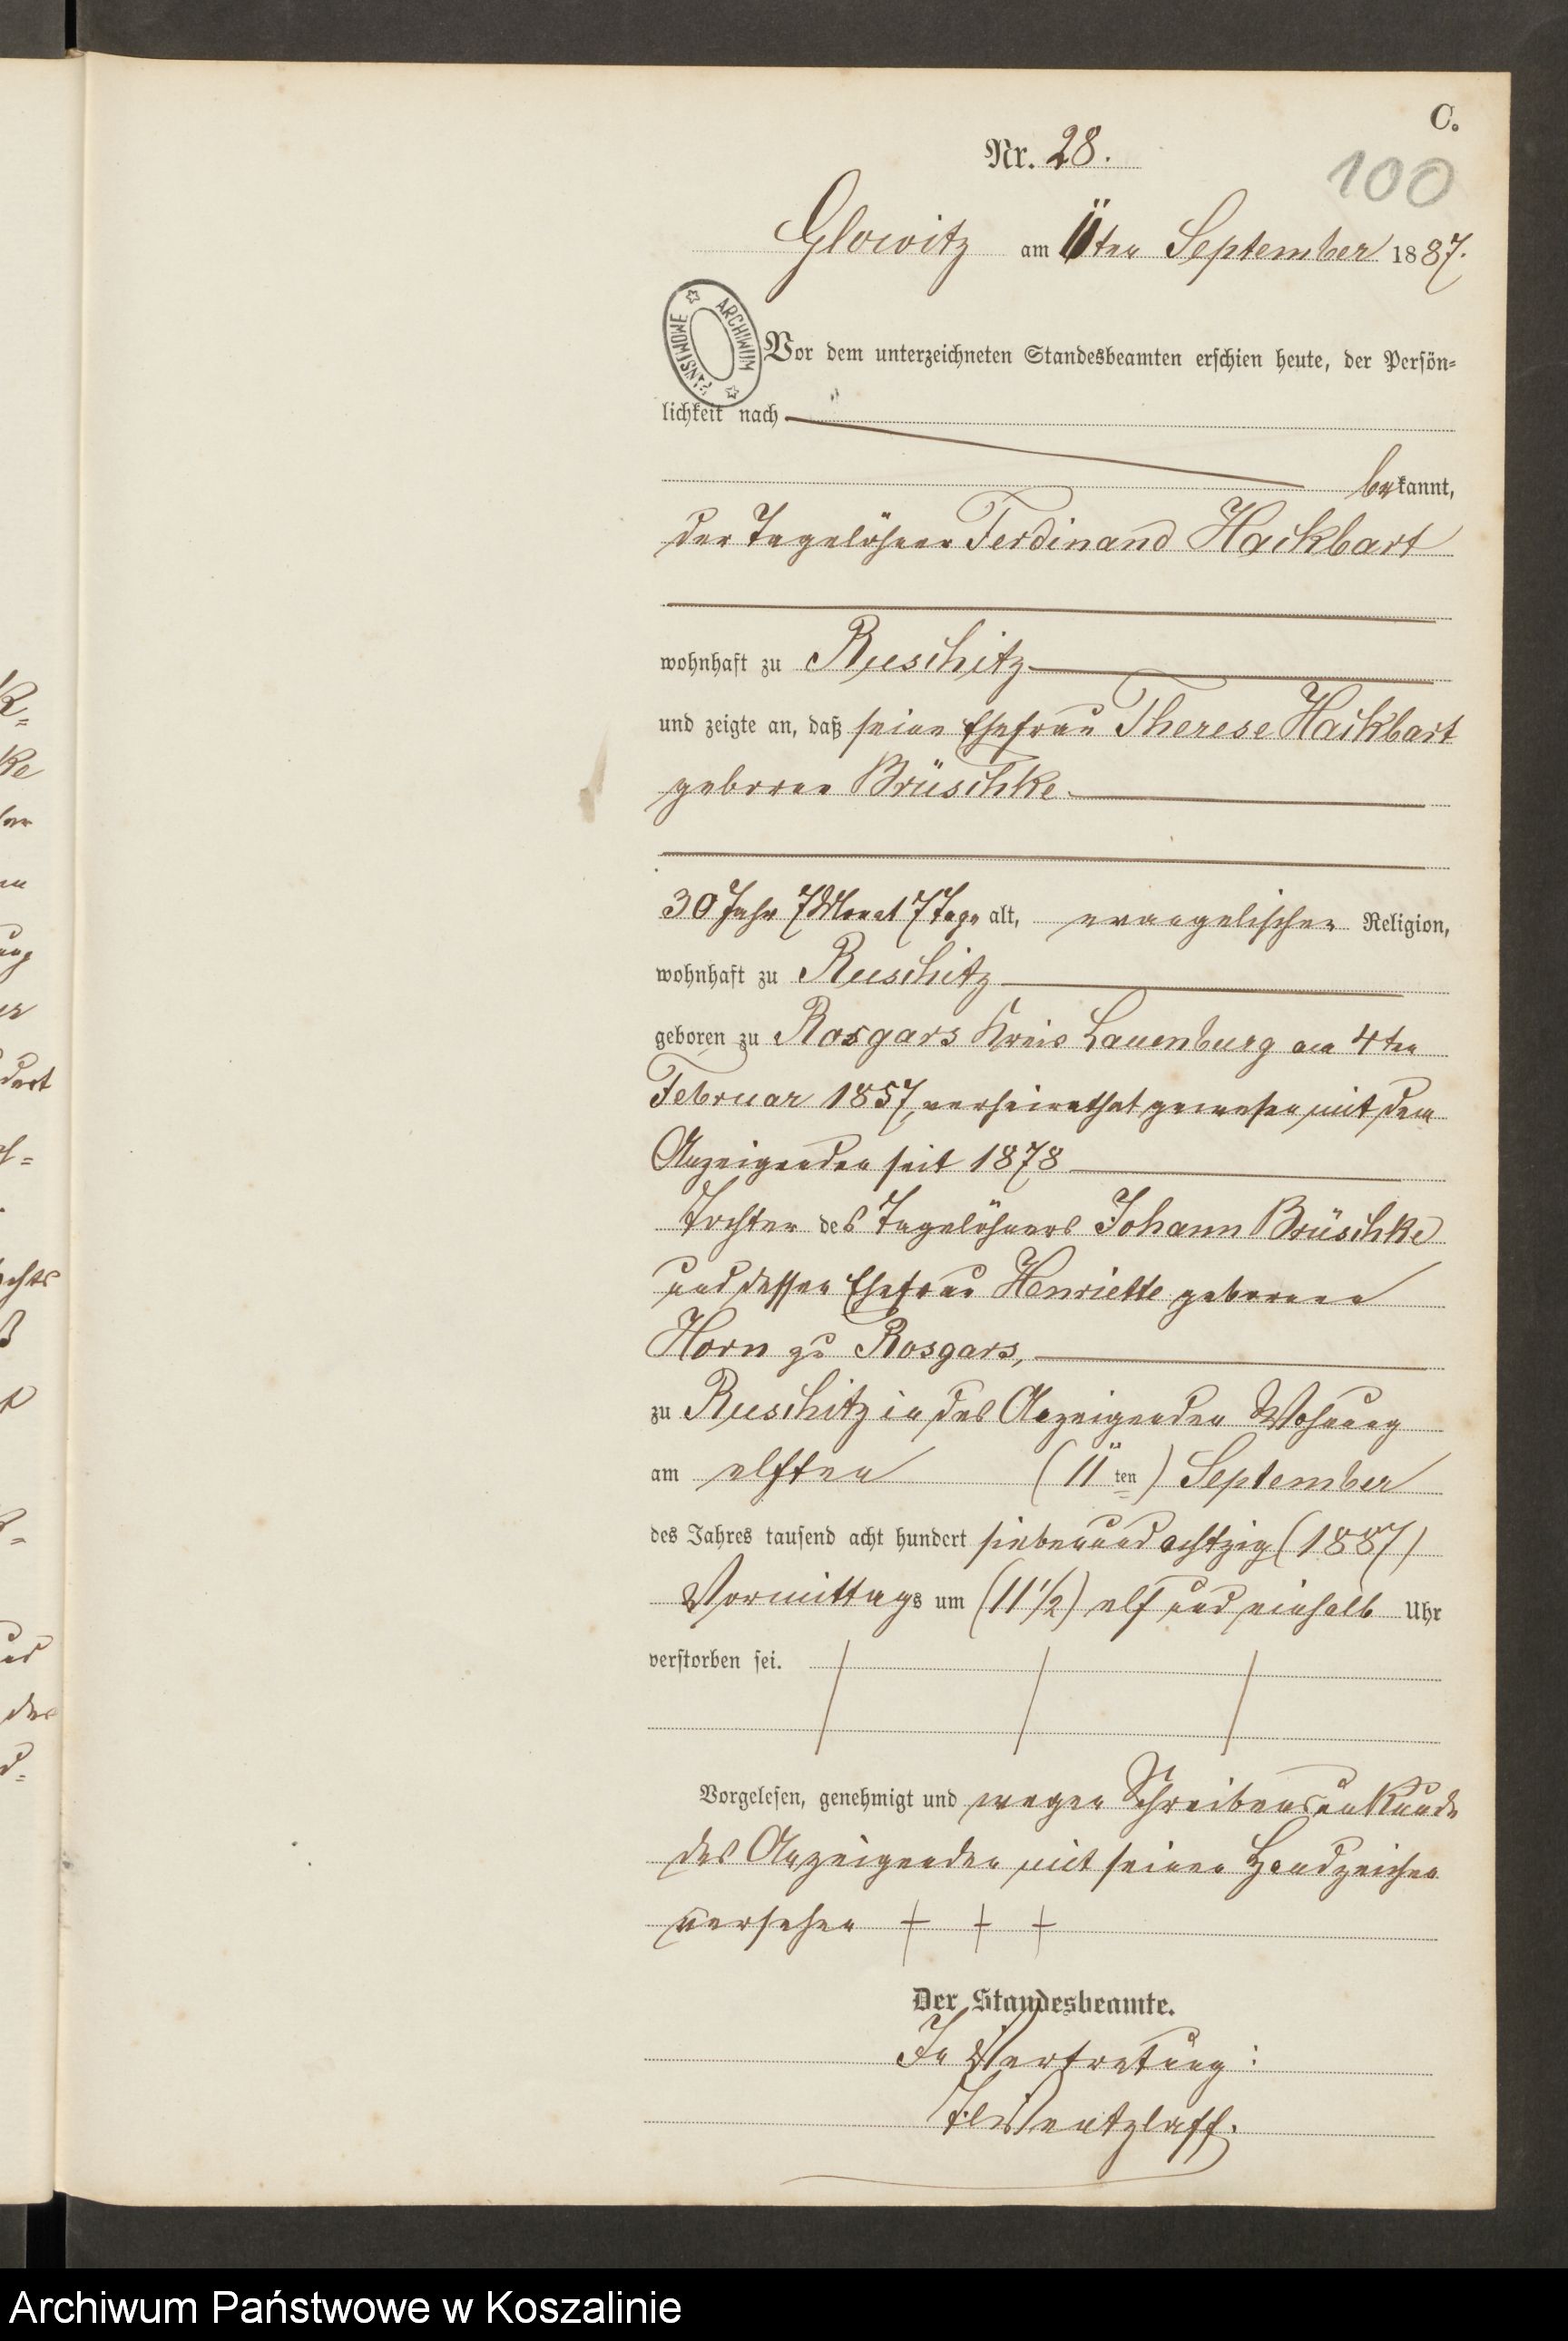 C.
Nr. 28.
100
Glowitz am 11ten September 1887.
ARCHIWUM PAŃSTWOWE
Vor dem unterzeichneten Standesbeamten erschien heute, der Persön=
lichkeit nach
bekannt,
der Tagelöhner Ferdinand Hackbart
wohnhaft zu Ruschitz
und zeigte an, daß seine Ehefrau Therese Hackbart
geborne Brüschke.
30 Jahr 7 Monat 7 Tage alt, evangelischer Religion,
wohnhaft zu Ruschitz
geboren zu Rosgars Kreis Lauenburg am 4ten
Februar 1857, verheirathet gewesen mit dem
Anzeigenden seit 1878
Tochter des Tagelöhners Johann Brüschke
und dessen Ehefrau Henriette geborene
Horn zu Rosgars,
zu Ruschitz in des Anzeigenden Wohnung
am elften (11ten) September
des Jahres tausend acht hundert siebenundachtzig (1887)
Vormittags um (11 1/2) elf und einhalb Uhr
verstorben sei.
Vorgelesen, genehmigt und wegen Schreibensunkunde
des Anzeigenden mit seinen Handzeichen
versehen + + +
Der Standesbeamte.
In Vertretung:
Wentzlaff.
K=
ke
dert
des
Archiwum Państwowe w Koszalinie